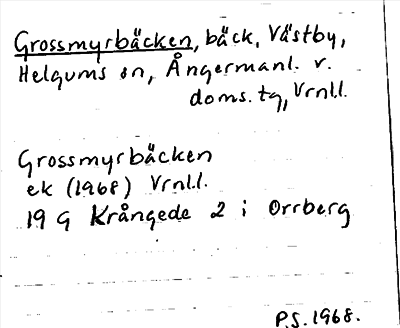 Grossmyrbäcken, bäck, Västby,
Helgums sn, Ångermanl. v.
doms. tg, Vrnll.
Grossmyrbäcken
ek (1968) Vrnll.
19 G Krångede 2 i Orrberg
P.S. 1968.